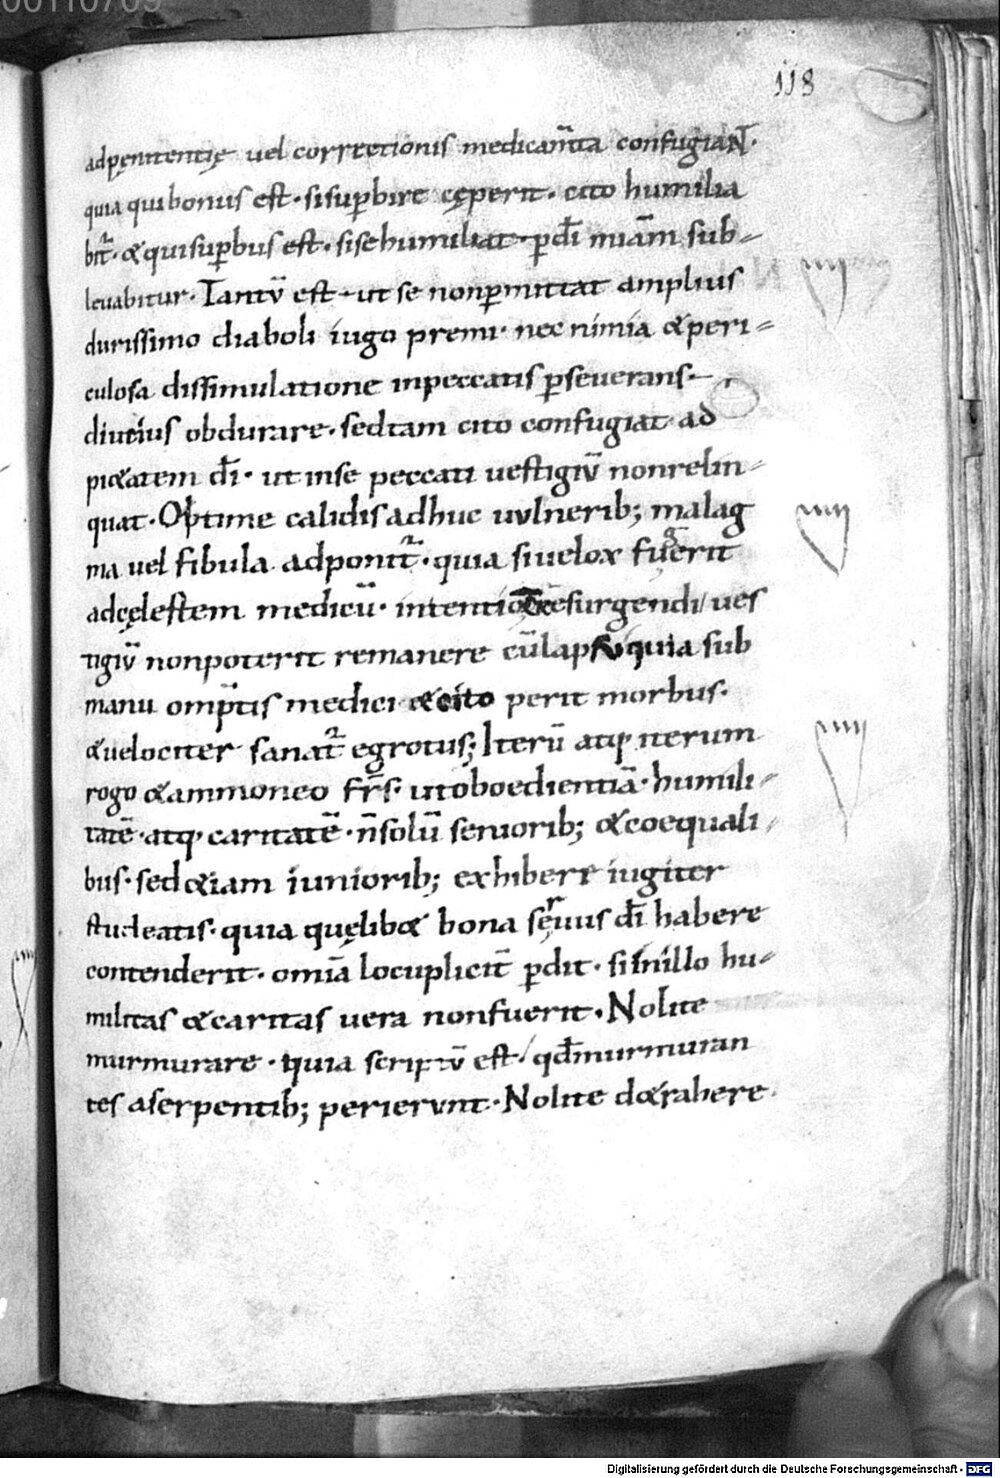 00110709
118
adpęnitentię vel correctionis medicam̄ta confugiant.
quia qui bonus est. si sup̄bire cęperit. cito humilia
bit̄. & qui sup̄bus est. si se humiliat. p̄ dī mīam sub-
levabitur. Tantū est ut se non p̄mittat amplius
durissimo diaboli iugo premi. nec nimia & peri-
culosa dissimulatione in peccatis p̄severans.
diutius obdurare. sed tam cito confugiat ad
pi&atem dī. ut in se peccati vestigiū non relin-
quat. Optime calidis adhuc vulnerib; malag
ma vel fibula adponit̄. quia si velox fuerit
ad cęlestem medicū. intentio resurgendi/ ves
tigiū non poterit remanere cū lapsu quia sub
manu omp̄tis medici & cito perit morbus.
& velociter sanat̄ egrotus; Iterū atq; iterum
rogo & ammoneo fr̄s. ut oboedientiā. humili-
tatē. atq; caritatē. n̄ solūseniorib; & coequali-
bus. sed &iam iuniorib; exhibere iugiter
studeatis. quia quęlib& bona servus dī habere
contenderit. omīa locuplicit̄ p̄dit. si in illo hu-
militas & caritas vera non fuerit. Nolite
murmurare. quia scriptū est/ qd̄ murmuran
tes a serpentib; perierunt. Nolite d&rahere.
Digitalisierung gefördert durch die Deutsche Forschungsgemeinschaft - DFG